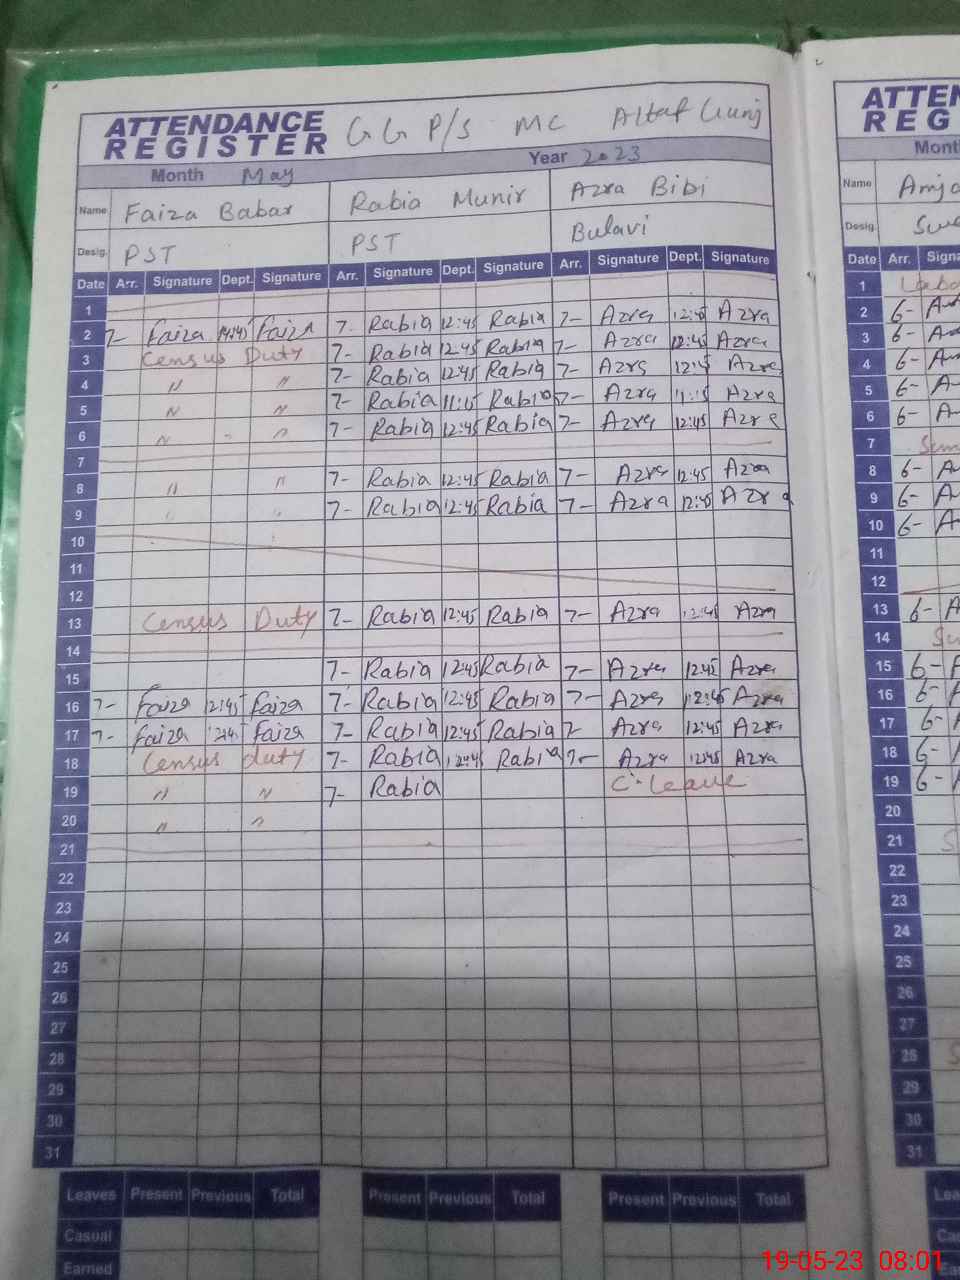 ATTENDANCE REGISTER G G P/S MC Altaf Gunj
Month May Year 2023
Name Faiza Babar Rabia Munir Azra Bibi
Desig. PST PST Bulavi
Date Arr. Signature Dept. Signature Arr. Signature Dept. Signature Arr. Signature Dept. Signature
1
2 7- Faiza 12:45 Faiza 7- Rabia 12:45 Rabia 7- Azra 12:45 Azra
3 Census Duty 7- Rabia 12:45 Rabia 7- Azra 12:45 Azra
4 " " 7- Rabia 12:45 Rabia 7- Azra 12:45 Azra
5 " " 7- Rabia 11:15 Rabia 7- Azra 11:15 Azra
6 " - " 7- Rabia 12:45 Rabia 7- Azra 12:45 Azra
7
8 " " 7- Rabia 12:45 Rabia 7- Azra 12:45 Azra
9 " " 7- Rabia 12:45 Rabia 7- Azra 12:45 Azra
10
11
12
13 Census Duty 7- Rabia 12:45 Rabia 7- Azra 12:45 Azra
14
15 7- Rabia 12:45 Rabia 7- Azra 12:45 Azra
16 7- Faiza 12:45 Faiza 7- Rabia 12:45 Rabia 7- Azra 12:45 Azra
17 7- Faiza 12:45 Faiza 7- Rabia 12:45 Rabia 7 Azra 12:45 Azra
18 Census duty 7- Rabia 12:45 Rabia 7- Azra 12:45 Azra
19 " " 7- Rabia C-Leave
20 " "
21
22
23
24
25
26
27
28
29
30
31
Leaves Present Previous Total Present Previous Total Present Previous Total
Casual
Earned
2
ATTEN
REG
Month
Name Amja
Desig. Swe
Date Arr. Signa
1 Labo
2 6- A
3 6- A
4 6- A
5 6- A
6 6- A
7 Sun
8 6- A
9 6- A
10 6- A
11
12
13 6- A
14 Su
15 6- A
16 6- A
17 6- A
18 6- A
19 6- A
20
21 S
22
23
24
25
26
27
28 S
29
30
31
Lea
Ca
Ea
19-05-23 08:01